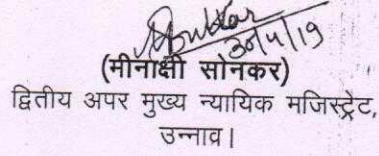 30/4/19
(मीनाक्षी सोनकर)
द्वितीय अपर मुख्य न्यायिक मजिस्ट्रेट,
उन्नाव।